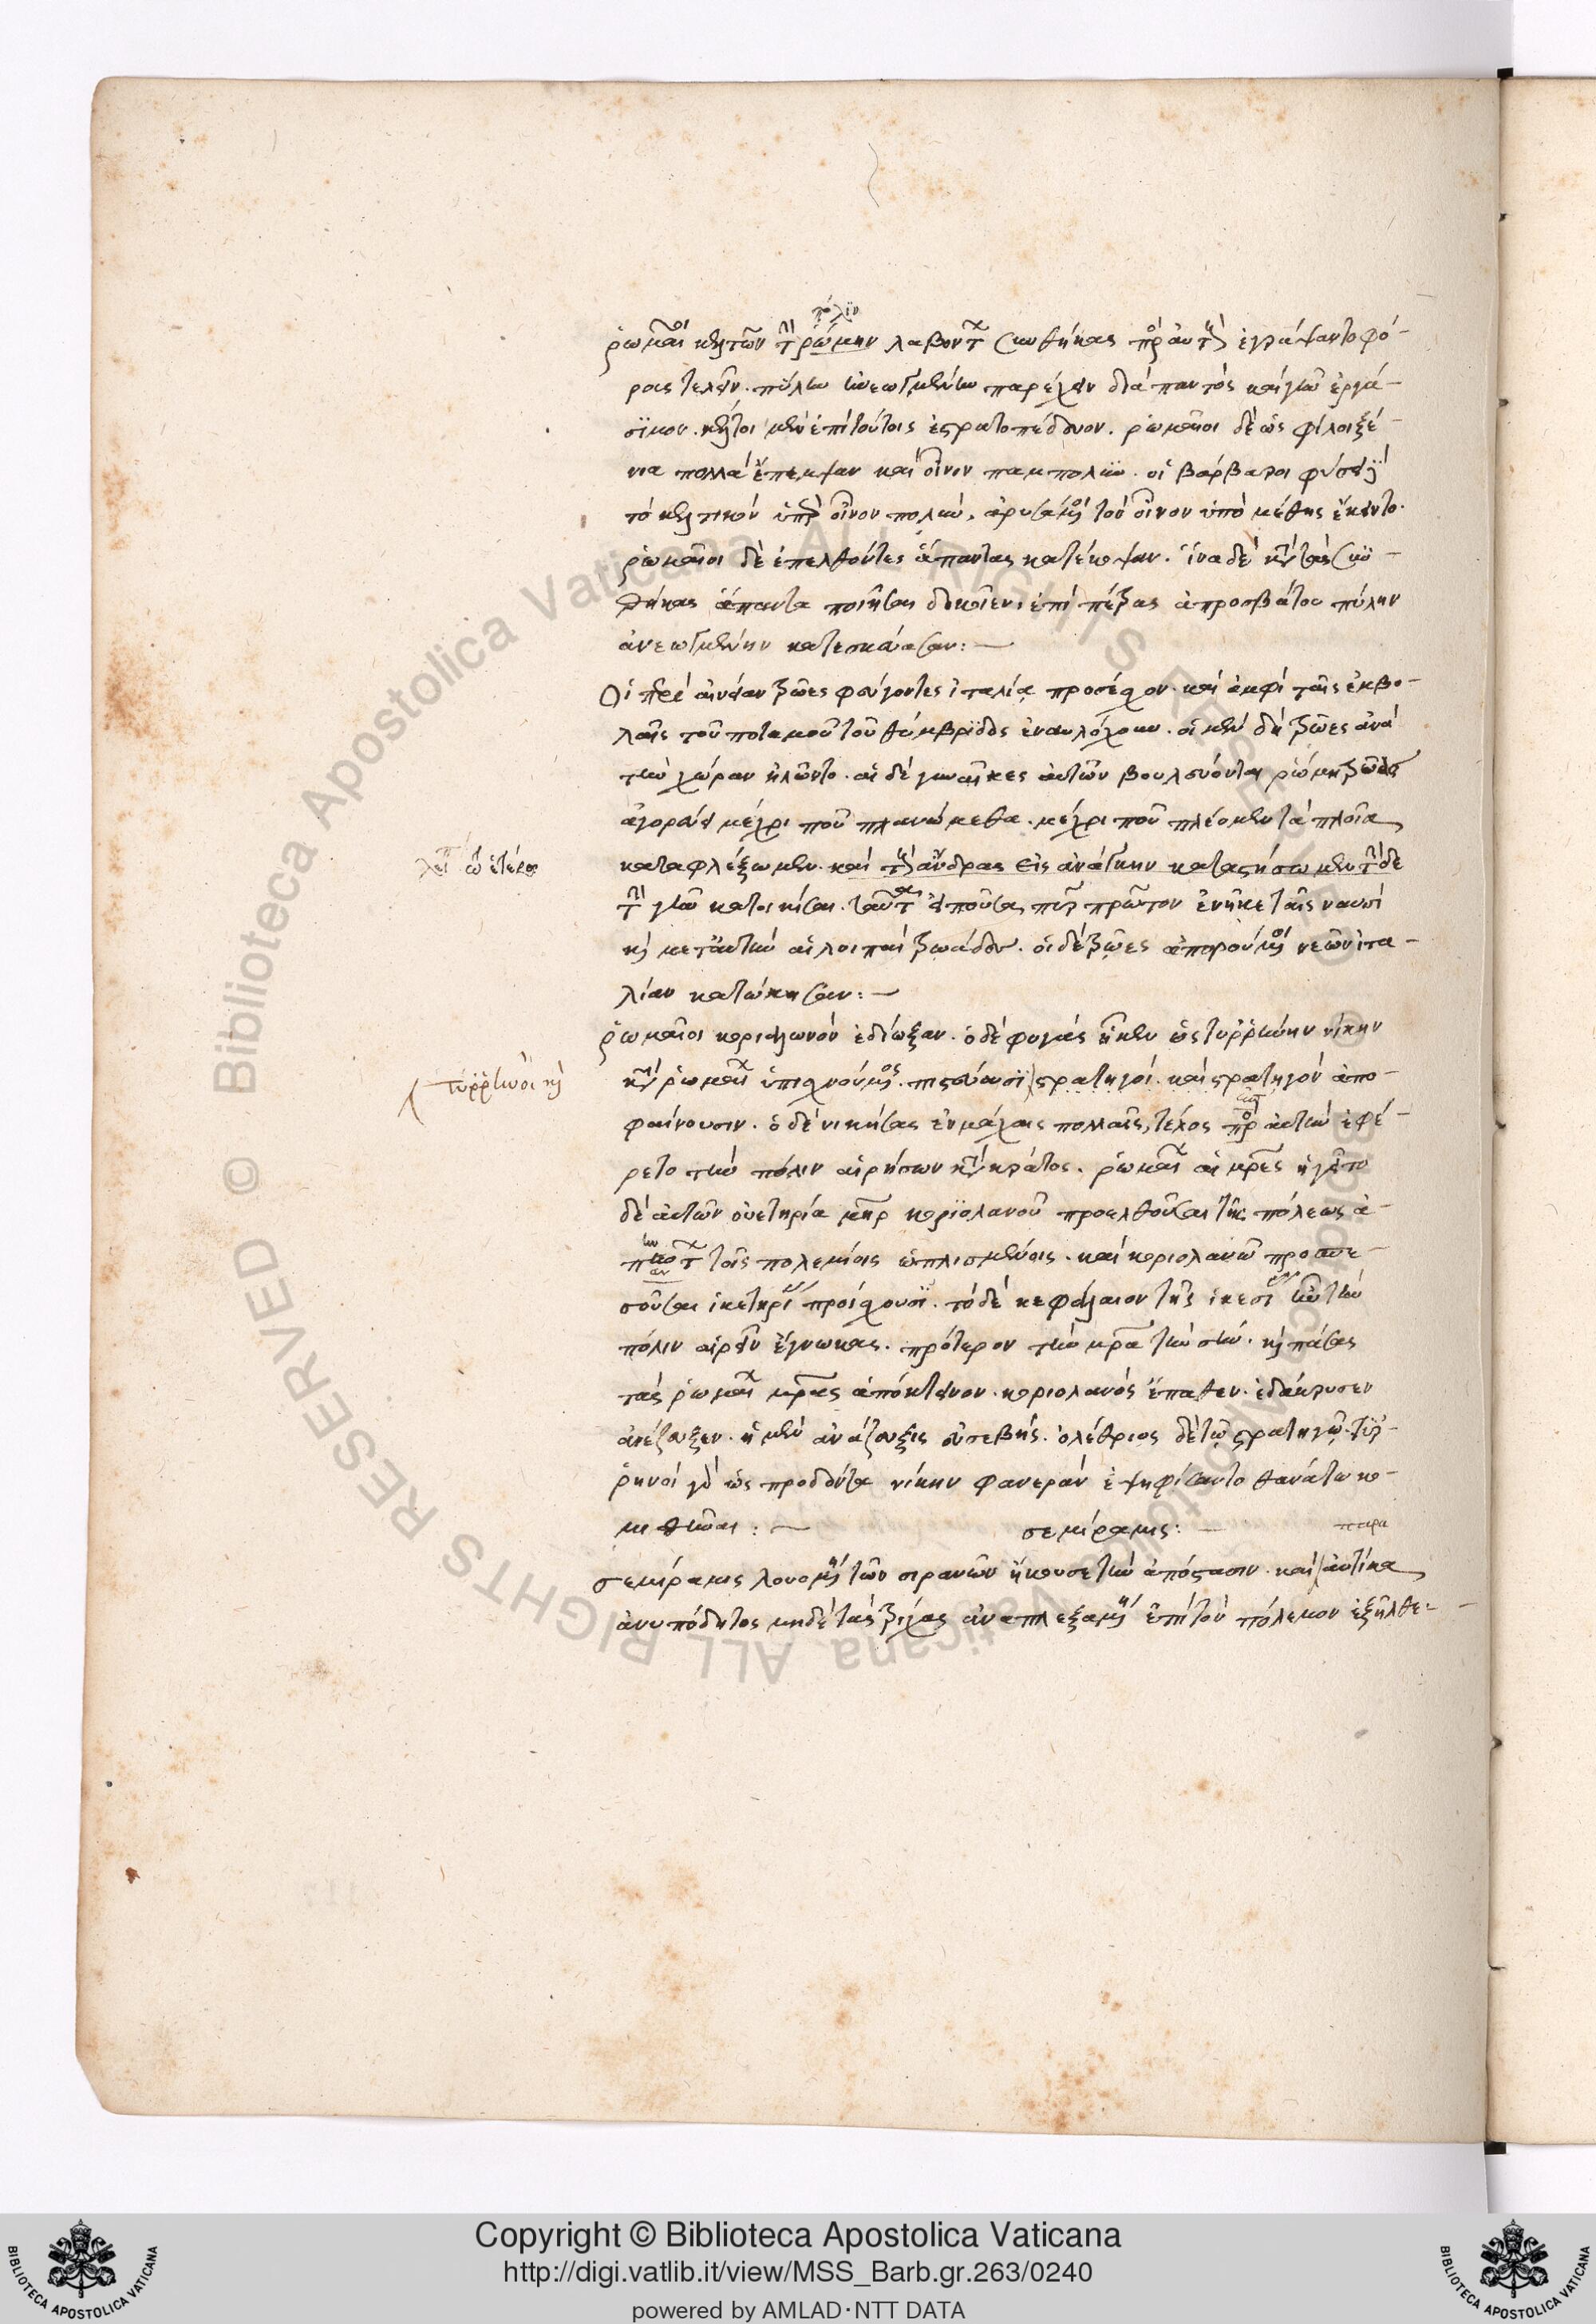 πόλιν
ῥωμαῖοι κελτῶν τὴν ῥώμην λαβόντων συνθήκας πρὸς αὐτοὺς ἐγράψαντο φό-
ρους τελεῖν. πύλην ἀνεωγμένην παρέχειν διὰ παντὸς καὶ γῆν ἐργά-
σιμον. κελτοὶ μὲν ἐπὶ τούτοις ἐστρατοπέδευον. ῥωμαῖοι δὲ ὡς φίλοι ξέ-
νια πολλὰ ἔπεμψαν καὶ οἶνον παμπολὺν. οἱ βάρβαροι φύσει
τὸ κελτικὸν οἶνον πολὺν, τὸν οἶνον ὑπὸ μέθης ἔκειντο.
ῥωμαῖοι δὲ ἐπελθόντες ἅπαντας κατέκοψαν. ἵνα δὲ κατὰ τὰς συν-
θήκας ἅπαντα ποιῆσαι δοκοῖεν, ἐπὶ πέτρας ἀπροσβάτου πύλην
ἀνεωγμένην κατεσκεύασαν: —
Οἱ περὶ αἰνείαν τρῶες φεύγοντες ἰταλίᾳ προσέσχον. καὶ ἀμφὶ ταῖς ἐκβο-
λαῖς τοῦ ποταμοῦ τοῦ θύμβριδος ἐναυλόχουν. οἱ μὲν δὴ τρῶες ἀνὰ
τὴν χώραν ἠλῶντο. αἱ δὲ γυναῖκες αὐτῶν βουλεύονται ῥώμη τρωὰς
ἀγορεύει μέχρι ποῦ πλανώμεθα. μέχρι ποῦ πλέομεν τὰ πλοῖα
καταφλέξωμεν. καὶ τοὺς ἄνδρας εἰς ἀνάγκην καταστήσωμεν τήνδε
τὴν γῆν κατοικῆσαι. ταῦτα εἰποῦσα, πῦρ πρῶτον ἐνῆκε ταῖς ναυσὶ
καὶ μετ᾽ αὐτὴν αἱ λοιπαὶ τρωάδες. οἱ δὲ τρῶες ἀπορούμενοι νεῶν ἰτα-
λίαν κατῴκησαν: —
ῥωμαῖοι κοριολανὸν ἐδίωξαν. ὁ δὲ φυγὰς ἧκεν ὡς τυρρηνοὺς νίκην
κατὰ ῥωμαίων ὑπισχνούμενος. πιστεύουσι στρατηγοί. καὶ στρατηγὸν ἀπο-
τυρρηνοὶ καὶ
φαίνουσιν. ὁ δὲ νικήσας ἐν μάχαις πολλαῖς, τέλος πρὸς αὐτὴν ἐφέ-
ρετο τὴν πόλιν αἱρήσων κατὰ κράτος. ῥωμαίων αἱ μητέρες ἡγεῖτο
δὲ αὐτῶν οὐετηρία μήτηρ κοριολανοῦ προελθοῦσαι τῆς πόλεως
τοῖς πολεμίοις ὡπλισμένοις. καὶ κοριολανῷ προσπε-
σοῦσαι ἱκετηρίας προίσχουσι. τὸ δὲ κεφάλαιον τῆς ἱκεσίας τὴν
πόλιν αἱρεῖν ἔγνωκας. πρότερον τὴν μητέρα τὴν σὴν. καὶ πάσας
τὰς ῥωμαίων μητέρας ἀπόκτεινον. κοριολανὸς ἔπαθεν. ἐδάκρυσεν
ἀνέζευξεν. ἡ μὲν ἀνάζευξις εὐσεβής. ὀλέθριος δὲ τῷ στρατηγῷ. τυρ-
ρηνοὶ γὰρ ὡς προδόντα νίκην φανερὰν ἐψηφίσαντο θανάτῳ
σεμίραμις: —
παρα
σεμίραμις λουομένη τῶν σιρανῶν ἤκουσε τὴν ἀπόστασιν. καὶ αὐτίκα
ἀνυπόδητος μηδὲ τὰς τρίχας ἀναπλεξαμένη ἐπὶ τὸν πόλεμον ἐξῆλθε.
Copyright © Biblioteca Apostolica Vaticana
http://digi.vatlib.it/view/MSS_Barb.gr.263/0240
powered by AMLAD·NTT DATA
BIBLIOTECA APOSTOLICA VATICANA
BIBLIOTECA APOSTOLICA VATICANA